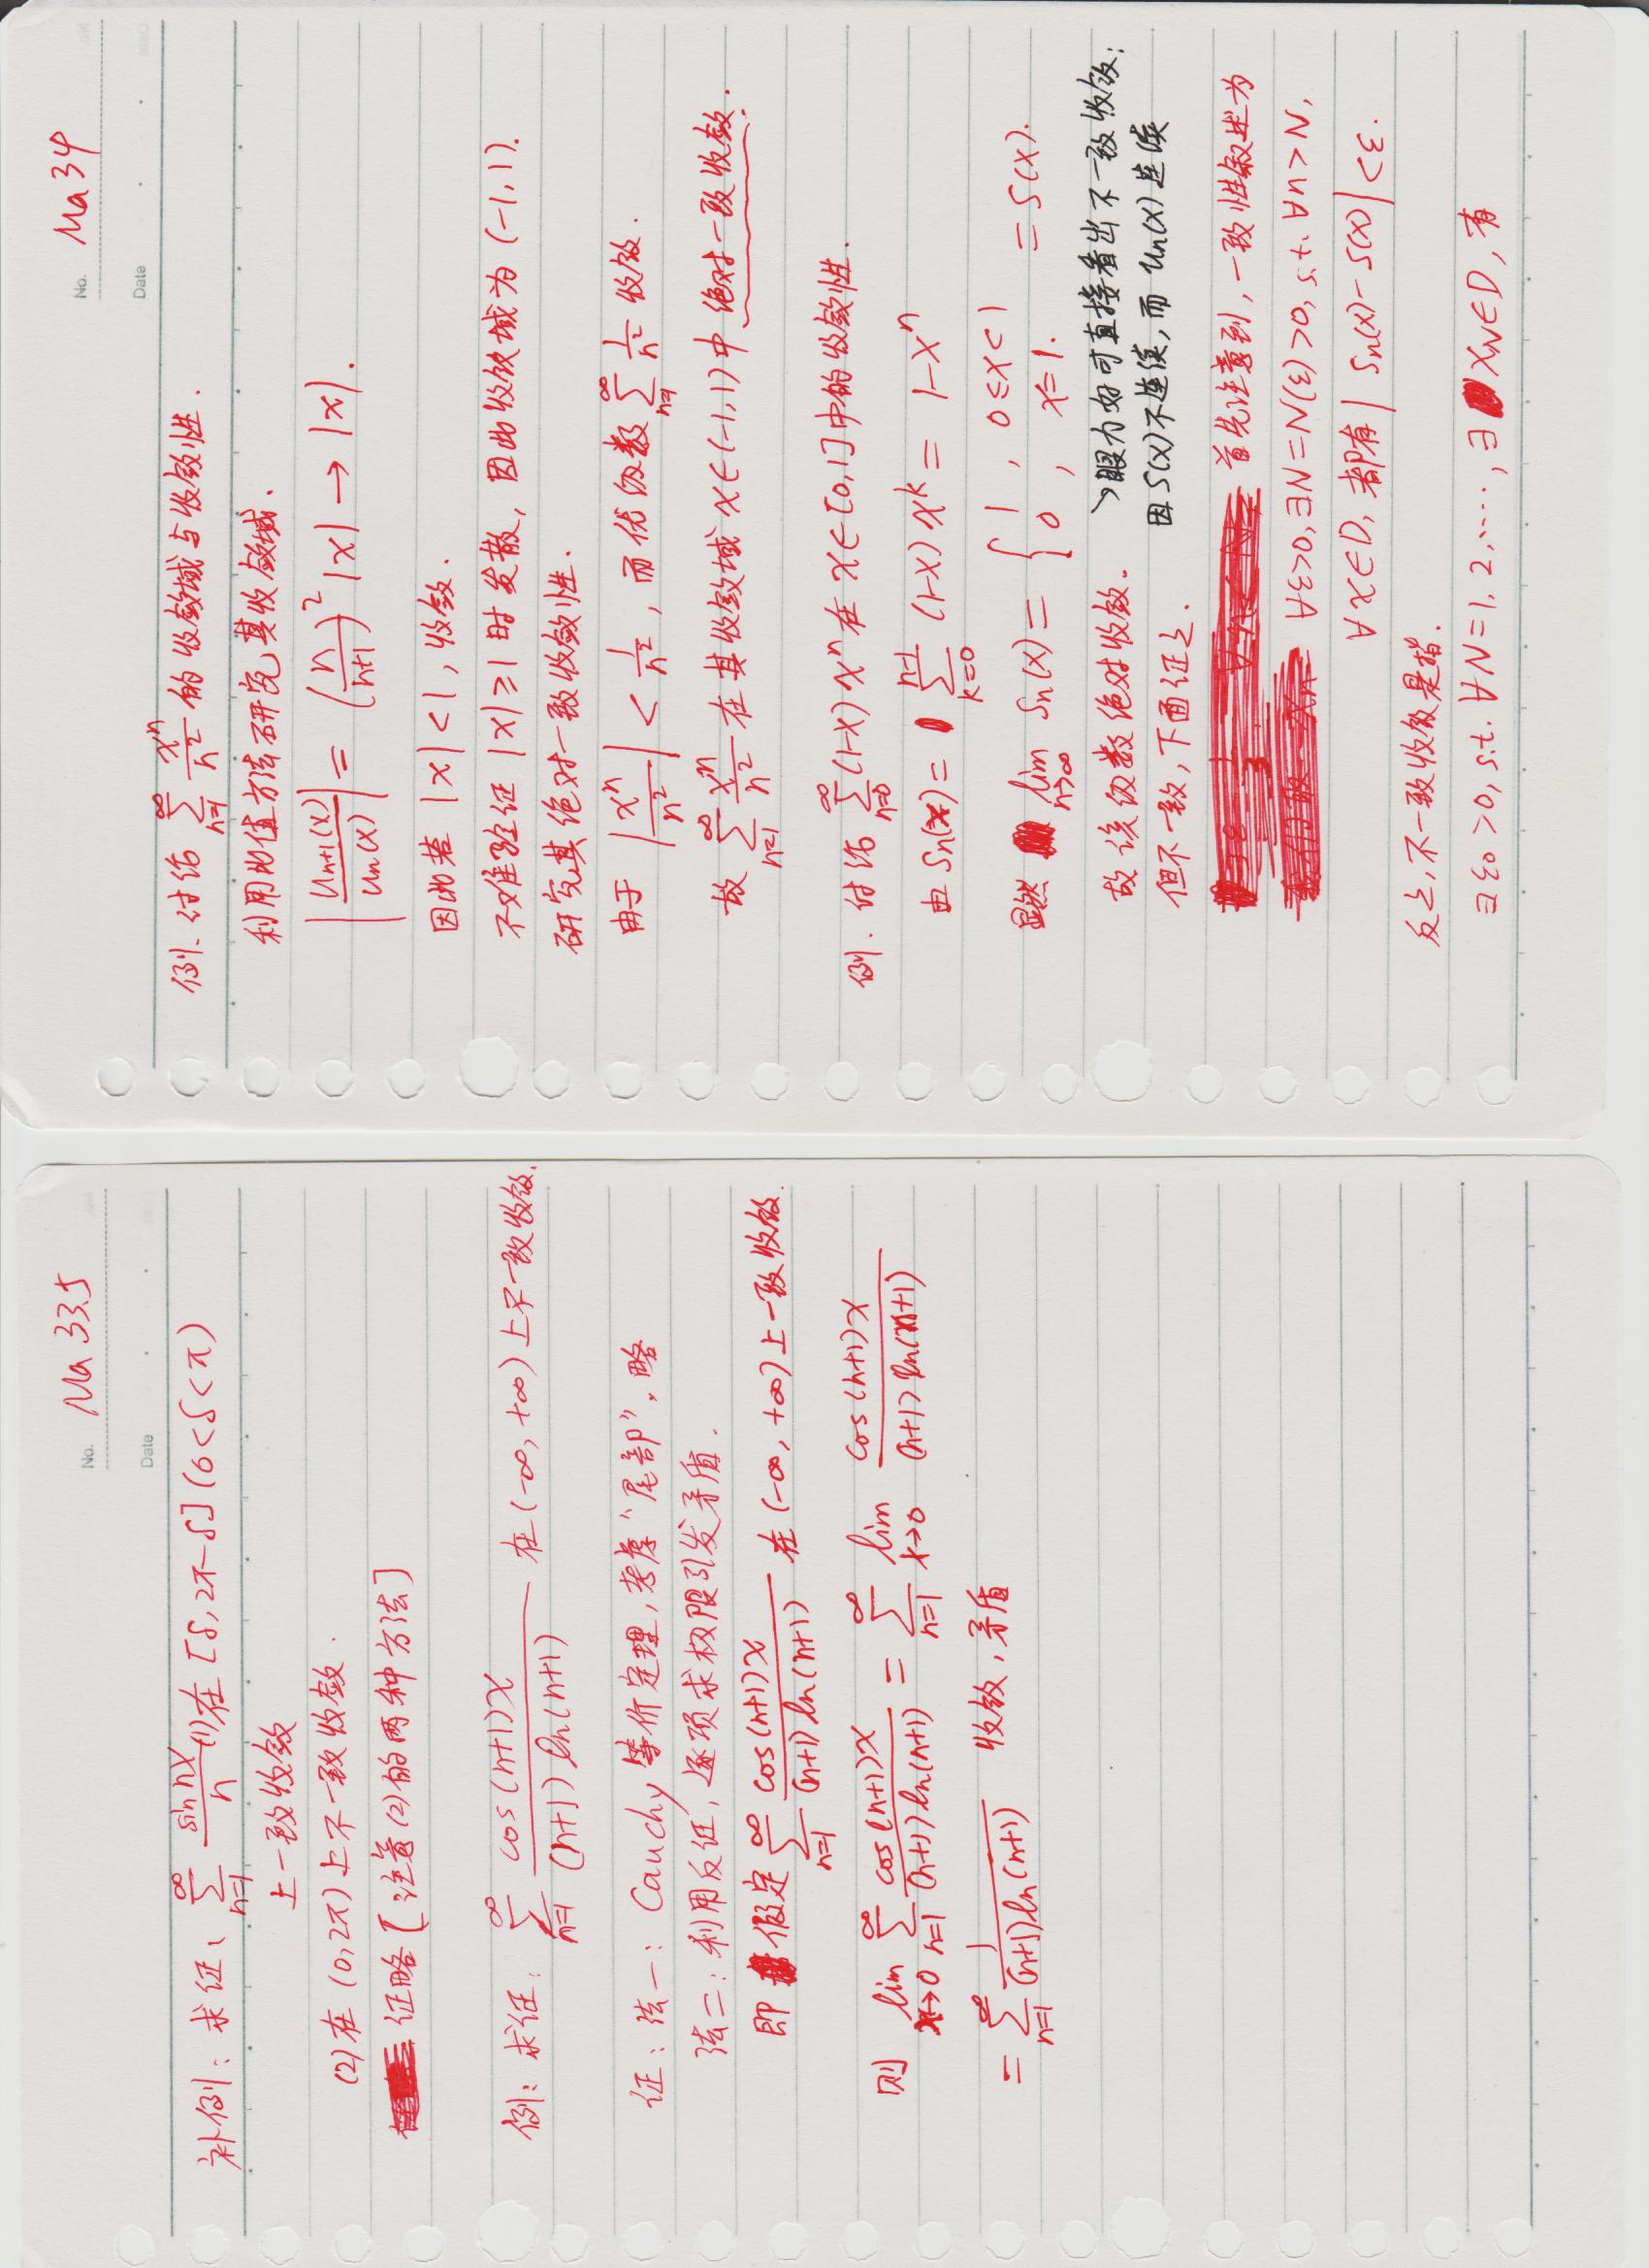 No. Ma 33.5
Date
补例：求证、∑_{n=1}^{∞} sin nx / n (1)在 [δ, 2π-δ] (0<δ<π)
上一致收敛
(2)在 (0, 2π) 上不一致收敛.
证略 [注意(2)的两种方法]
例：求证. ∑_{n=1}^{∞} cos(n+1)x / (n+1) ln(n+1) 在 (-∞, +∞) 上不一致收敛.
证：法一：Cauchy 等价定理, 考虑“尾部”. 略
法二：利用反证, 逐项求极限引发矛盾.
即 假定 ∑_{n=1}^{∞} cos(n+1)x / (n+1) ln(n+1) 在 (-∞, +∞) 上一致收敛.
则 lim_{x→0} ∑_{n=1}^{∞} cos(n+1)x / (n+1) ln(n+1) = ∑_{n=1}^{∞} lim_{x→0} cos(n+1)x / (n+1) ln(n+1)
= ∑_{n=1}^{∞} 1 / (n+1) ln(n+1) 收敛, 矛盾
No. Ma 34
Date
例. 讨论 ∑_{n=1}^{∞} x^n / n^2 的收敛域与收敛性.
利用比值方法研究其收敛域.
|u_{n+1}(x) / u_n(x)| = (n / n+1)^2 |x| → |x|.
因此若 |x| < 1, 收敛.
不难验证 |x| ≥ 1 时发散, 因此收敛域为 (-1, 1).
研究其绝对一致收敛性.
由于 |x^n / n^2| < 1 / n^2, 而优级数 ∑_{n=1}^{∞} 1 / n^2 收敛.
故 ∑_{n=1}^{∞} x^n / n^2 在其收敛域 x∈(-1, 1) 中绝对一致收敛.
例. 讨论 ∑_{n=0}^{∞} (1-x) x^n 在 x∈[0, 1] 中的收敛性.
由 S_n(x) = ∑_{k=0}^{n-1} (1-x) x^k = 1-x^n
显然 lim_{n→∞} S_n(x) = { 1, 0≤x<1
0, x=1. = S(x).
故该级数绝对收敛.
但不一致, 下面证之.
↘眼力好可直接看出不一致收敛;
因 S(x) 不连续, 而 u_n(x) 连续
首先注意到, 一致性叙述为
∀ε>0, ∃N=N(ε)>0, s.t. ∀n>N,
∀x∈D, 都有 |S_n(x) - S(x)| < ε.
反之, 不一致收敛是指.
∃ε_0 > 0, s.t. ∀N = 1, 2, ‥‥, ∃ x_N∈D, 有